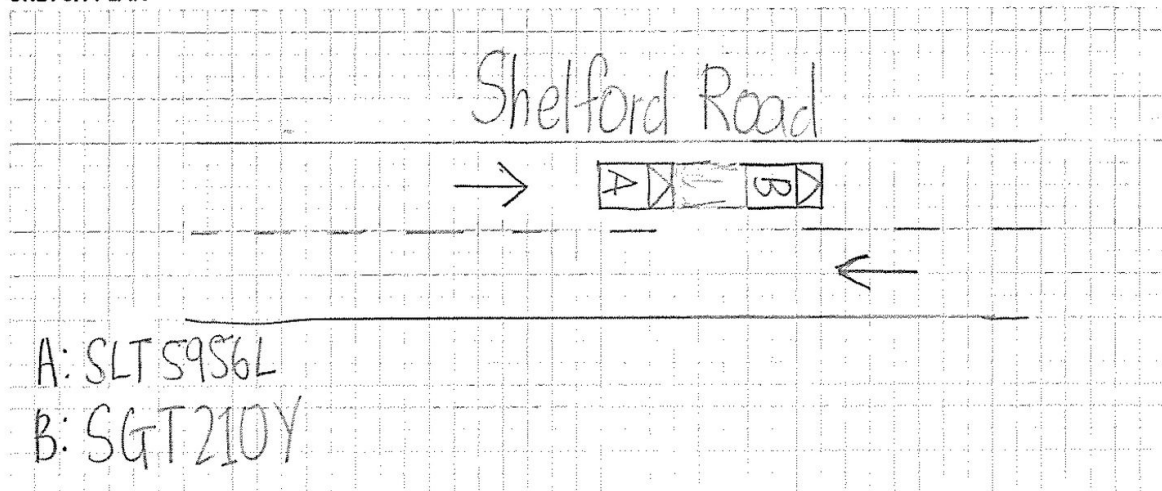 Shelford Road
A
B
A: SLT5956L
B: SGT210Y